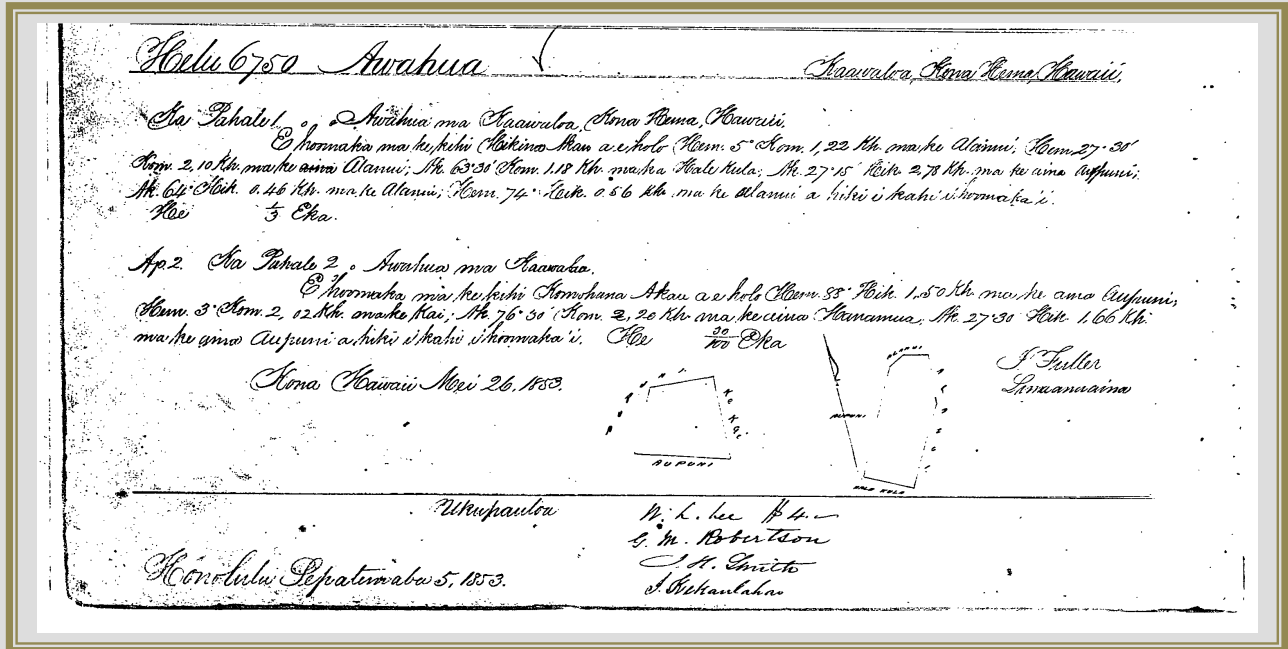 Helu 6750 Awahua Kaawaloa, Kona Hema, Hawaii,
Ka Pahale 1 o Awahua ma Kaawaloa, Kona Hema, Hawaii.
E hoomaka ma ke kihi Hikina Akau a e holo Hem. 5° Kom. 1,22 Kh. ma ke Alanui; Hem 27°30'
Kom. 2,10 Kh. ma ke aina Alanui; Ak. 63°30' Kom. 1.18 Kh. ma ka Hale Kula; Ak. 27°15' Hik. 2,78 Kh. ma ke aina Aupuni;
Ak. 64° Hik. 0.46 Kh. ma ke Alanui; Hem. 74° Hik. 0.56 Kh. ma ke Alanui a hiki i kahi i hoomaka'i.
He 1/3 Eka.
Ap. 2. Ka Pahale 2 o Awahua ma Kaawaloa.
E hoomaka ma ke kihi Komohana Akau a e holo Hem. 88° Hik. 1,50 Kh. ma ke aina Aupuni;
Hem. 3° Kom. 2,02 Kh. ma ke Kai; Ak. 76°30' Kom. 2,20 Kh. ma ke aina Hanamua; Ak. 27°30 Hik. 1.66 Kh.
ma ke aina Aupuni a hiki i kahi i hoomaka'i. He 30/100 Eka
Kona Hawaii Mei 26, 1853.
J. Fuller
Luna ana aina
ALANUI
AUPUNI
HALE KULA
Ke Kai
AUPUNI
Ukupauloa
W. L. Lee $4.—
G. M. Robertson
J. H. Smith
J. Kekaulahao
Honolulu Sepatemaba 5, 1853.